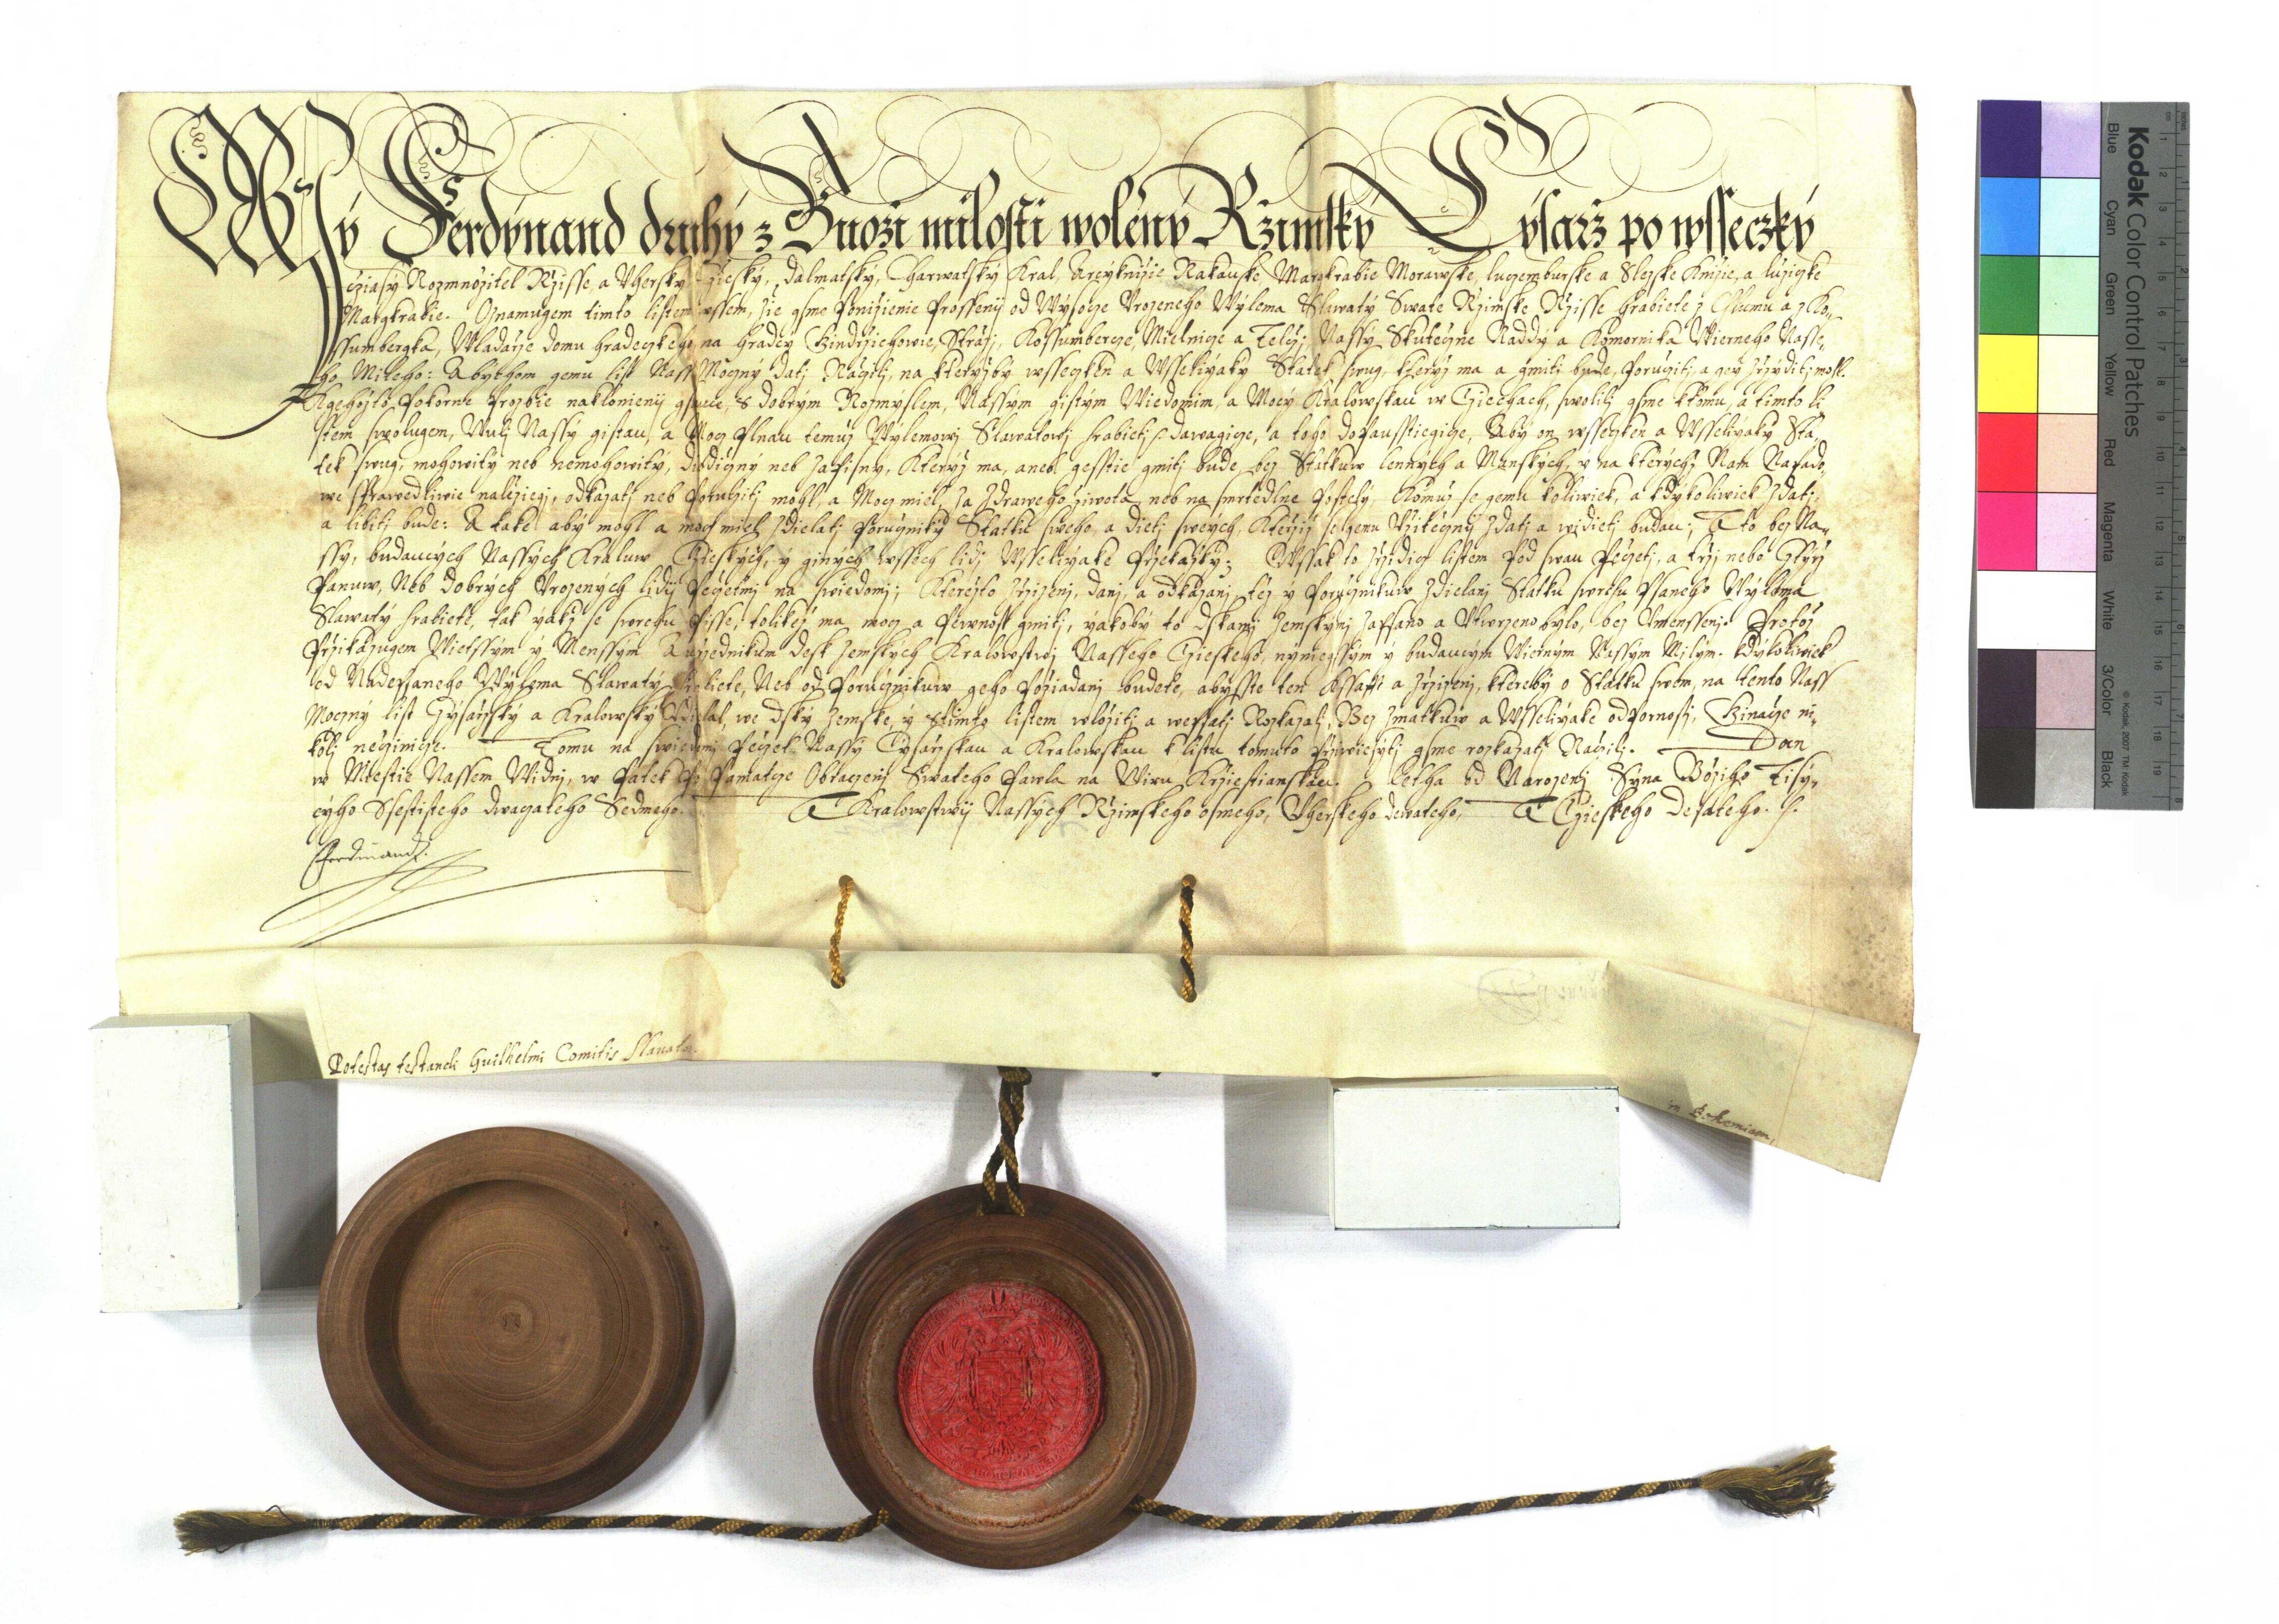 My Ferdynand druhy z Buozi milosti woleny Rzimsky Cysarz po wsseczky
cziasy Rozmnozitel Rzisse, a Vhersky Czesky, Dalmatsky, Charwatsky Kral, Arcyknize Rakauske Margkrabie Morawske, lucemburske a Slezske Knize, a luziczke
Margkrabie. Oznamugem timto listem wssem, zie gsme ponizienie prosseny od Wysocze Vrozeneho Wylema Slawaty Swate Rzimske Rzisse hrabiete z Chlumu a z Ko-
ssumbergka, Wladarze domu hradeczkeho, na hradcy Gindrzichowie, Strazi, Kossumbercze, Mielnicze a Telczi Nassy Skuteczne Raddy a Komornika Wierneho Nasse-
ho Mileho: Abychom gemu list Nass Moczny dati raczili, na kteryzby wssecken a Wsseligaky Statek swug, kteryz ma a gmiti bude, poruczíti, a gey zrzyditi mohl.
K gehozto pokorne prozbie naklonieny gsaucze, s dobrym Rozmyslem, Nassym gistym Wiedomim, a Moczy Kralowskau w Czechach, swolili gsme k tomu, a timto li-
stem swolugem, Wuli Nassy gistau, a Mocz plnau temuz Wylemowi Slawatowi hrabieti dawagicze, a toho dopausstiegicze, Aby on wssecken a Wsselikaky Sta-
tek swug, mohowity neb nemohowity, diediczny neb zapisny, kteryz ma, aneb gesstie gmiti bude, bez Statkuw lennych a Manskych, y na kterychz Nam Napado-
we sprawedliwie nalezegi, odkazati neb poruczíti mohl, a Mocz miel, za zdraweho ziwota, neb na smrtedlne posteli, Komuz se gemu koliwiek, a kdyzkoliwiek zdati,
a libiti bude: A take aby mohl a mocz miel zdielati poruczniky Statku sweho, a dieti swych, kterziz se gemu vziteczny zdati a widieti budau; A to bez Na-
ssy, budaucych Nassych Kraluw Czeskych, y ginych wssech lidi Wsselikake przekazky; Wssak to zrzidiegi listem pod swau peczeti, a trzi nebo cztyrz
Panuw, Neb dobrych Vrozenych lidi peczetmi na swiedomi; Kterezto zrzizeni, dani, a odkazani, tez y porucznikuw zdielani Statku swrchu psaneho Wylema
Slawaty hrabiete, tak yakz se swrchu pisse, tolikez ma mocz a pewnost gmiti, yakoby to dskami zemskymi zapsano a Vtwrzeno bylo, bez Vmenssenj. Protoz
Przikazugem Wietssym y Menssym Aurzednikum desk zemskych Kralowstwi Nasseho Czeskeho, nyniegssym y budaucym Wiernym Nassym Milym. kdyzkoliwiek
od Nadepsaneho Wylema Slawaty hrabiete, Neb od porucznikuw geho pozadani budete, abysste ten Kssafft a zrzizeni, ktereby o Statku swem, na tento Nass
Moczny list Cysarzsky a Kralowsky Vdielal, we dsky zemske, y stimto listem wlozíti a wepsati Rozkazali, Bez zmatkuw a Wsselikake odpornosti, Ginacze ni-
koli necziniecze. Tomu na swiedomi peczet Nassy Cysarskau a Kralowskau k listu tomuto przywiesyti gsme rozkazati Raczili. Dan
w Miestie Nassem Widni, w Patek po Pamatcze Obraczeni Swateho Pawla na Wiru Krziestianskau. Letha od Narozeni Syna Boziho Tisy-
cyho Ssestisteho dwaczateho Sedmeho. A Kralowstwy Nassych Rzimskeho osmeho, Vherskeho dewateho, A Czeskeho Desateho.
Ferdinand.
Potestas testandi Guilhelmi Comitis Slavatae.
in Bohemicam,
Kodak Color Control Patches
© Kodak, 2007 TM Kodak
Blue Cyan Green Yellow Red Magenta White 3/Color Black
1 2 3 4 5 6 7 8 9 10 11 12 13 14 15 16 17 18 19
1 2 3 4 5 6 7 8